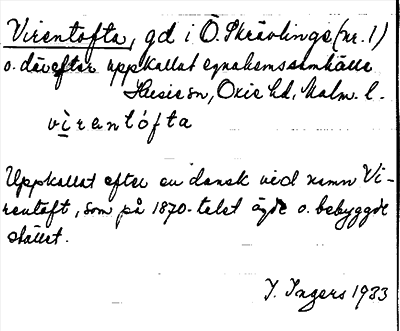 Virentofta, gd i Ö. Skrävlinge (nr. 1)
o. därefter uppkallat egnahemssamhälle
Husie sn, Oxie hd, Malm. l.
virentófta
Uppkallat efter en dansk ved namn Vi-
rentoft, som på 1870-talet ägde o. bebyggde
stället.
I. Ingers 1933